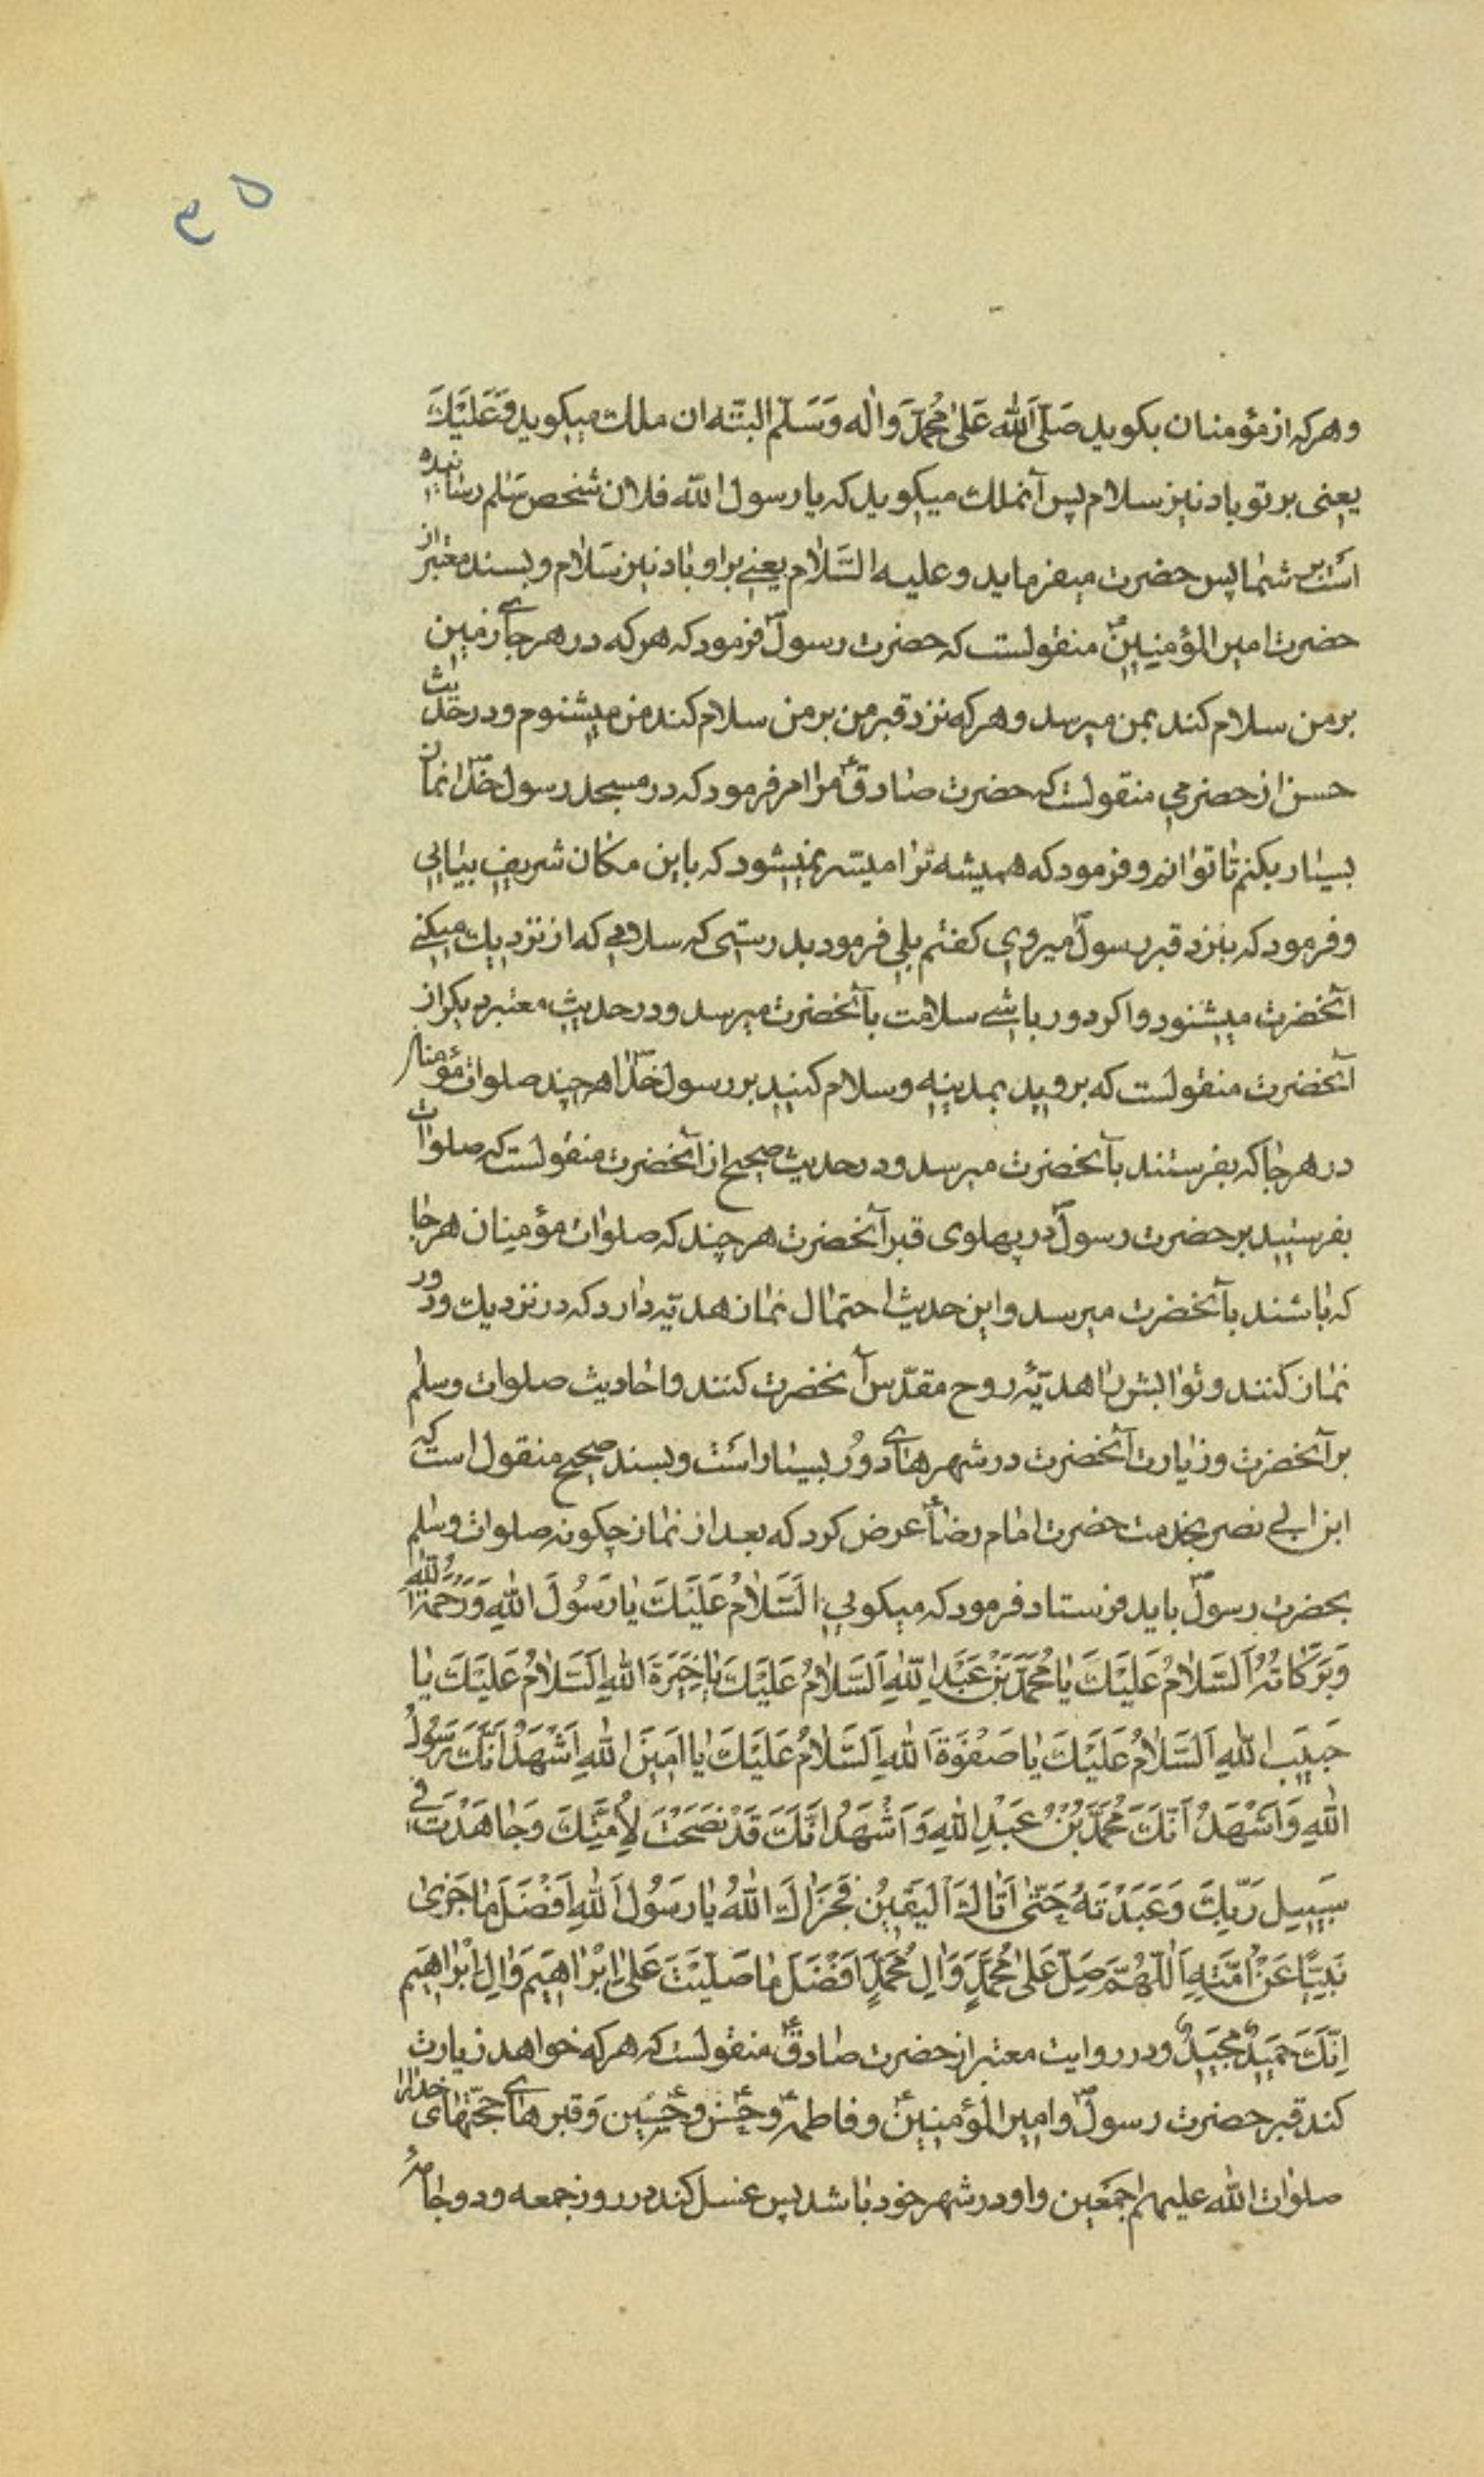 ۳۵
وهرکه از مؤمنان بکوید صَلَّی اللّٰه عَلیٰ مُحَمَّدٍ وَاٰلِه وَسَلَّم البتّه ان ملك میکوید وَعَلَیْكَ
یعنی بر تو باد نیز سلام پس آنملك میکوید که یا رسول اللّه فلان شخص سَلٰم رسٰانیده
است بر شمٰا پس حضرت میفرماید وعلیه السَّلٰام یعنے بر او بٰاد نیز سَلٰام و بسند معتبر از
حضرت امیر المؤمنینؑ منقولست که حضرت رسولؐ فرمود که هرکه در هر جاے زمین
بر من سلام کند بمن میرسد و هرکه نزد قبر من بر من سلام کند من میشنوم و در حدیث
حسن از حضرمی منقولست که حضرت صٰادقؑ مرا امر فرمود که در مسجد رسول خدٰاؐ نمٰاز
بسیٰار بکنم تٰا توٰانم و فرمود که همیشه ترٰا میسّر نمیشود که باین مکٰان شریف بیٰایی
و فرمود که بنزد قبر رسولؐ میروی کفتم بلی فرمود بدرستی که سلامے که از نزدیك میکنے
آنحضرت میشنود و اکر دور باشے سلامت بآنحضرت میرسد و در حدیث معتبر دیکر از
آنحضرت منقولست که بروید بمدینه و سلام کنید بر رسول خدٰاؐ هر چند صلوات مؤمنٰان
در هر جٰا که بفرستند بآنحضرت میرسد و در حدیث صحیح از آنحضرت منقولست که صلوات
بفرستید بر حضرت رسولؐ در پهلوی قبر آنحضرت هر چند که صلوٰات مؤمنان هر جٰا
که بٰاشند بآنحضرت میرسد و این حدیث احتمٰال نمٰاز هدیّه دٰارد که در نزدیك و دور
نمٰاز کنند و ثوٰابش رٰا هدیّهٔ روح مقدّس آنحضرت کنند و احٰادیث صلوات و سلٰم
بر آنحضرت و زیٰارت آنحضرت در شهرهٰاے دُور بسیٰار است و بسند صحیح منقول است که
ابن ابی نصر بخدمت حضرت امٰام رضٰاؑ عرض کرد که بعد از نمٰاز چکونه صلوات و سلٰم
بحضرت رسولؐ باید فرستاد فرمود که میکویی اَلسَّلٰامُ عَلَیْكَ یٰا رَسُولَ اللّٰهِ وَرَحْمَةُ اللّٰهِ
وَبَرَکٰاتُهُ اَلسَّلٰامُ عَلَیْكَ یٰا مُحَمَّدَ بْنَ عَبْدِ اللّٰهِ اَلسَّلٰامُ عَلَیْكَ یٰا خِیَرَةَ اللّٰهِ اَلسَّلٰامُ عَلَیْكَ یٰا
حَبِیبَ اللّٰهِ اَلسَّلٰامُ عَلَیْكَ یٰا صَفْوَةَ اللّٰهِ اَلسَّلٰامُ عَلَیْكَ یٰا اَمِینَ اللّٰهِ اَشْهَدُ اَنَّكَ رَسُولُ
اللّٰهِ وَاَشْهَدُ اَنَّكَ مُحَمَّدُ بْنُ عَبْدِ اللّٰهِ وَاَشْهَدُ اَنَّكَ قَدْ نَصَحْتَ لِأُمَّتِكَ وَجٰاهَدْتَ فِی
سَبِیلِ رَبِّكَ وَعَبَدْتَهُ حَتّٰی اَتٰاكَ الْیَقِینُ فَجَزٰاكَ اللّٰهُ یٰا رَسُولَ اللّٰهِ اَفْضَلَ مٰا جَزیٰ
نَبِیًّا عَنْ اُمَّتِهِ اَللّٰهُمَّ صَلِّ عَلیٰ مُحَمَّدٍ وَاٰلِ مُحَمَّدٍ اَفْضَلَ مٰا صَلَّیْتَ عَلیٰ اِبْرٰاهِیمَ وَاٰلِ اِبْرٰاهِیمَ
اِنَّكَ حَمِیدٌ مَجِیدٌ و در روایت معتبر از حضرت صٰادقؑ منقولست که هرکه خواهد زیٰارت
کند قبر حضرت رسولؐ و امیر المؤمنینؑ و فاطمهؑ و حسنؑ و حسینؑ و قبرهٰاے حجّتهٰای خدٰارا
صلوٰات اللّٰه علیهم اجمَعین و او در شهر خود بٰاشد پس غسل کند در روز جمعه و دو جٰامهٔ